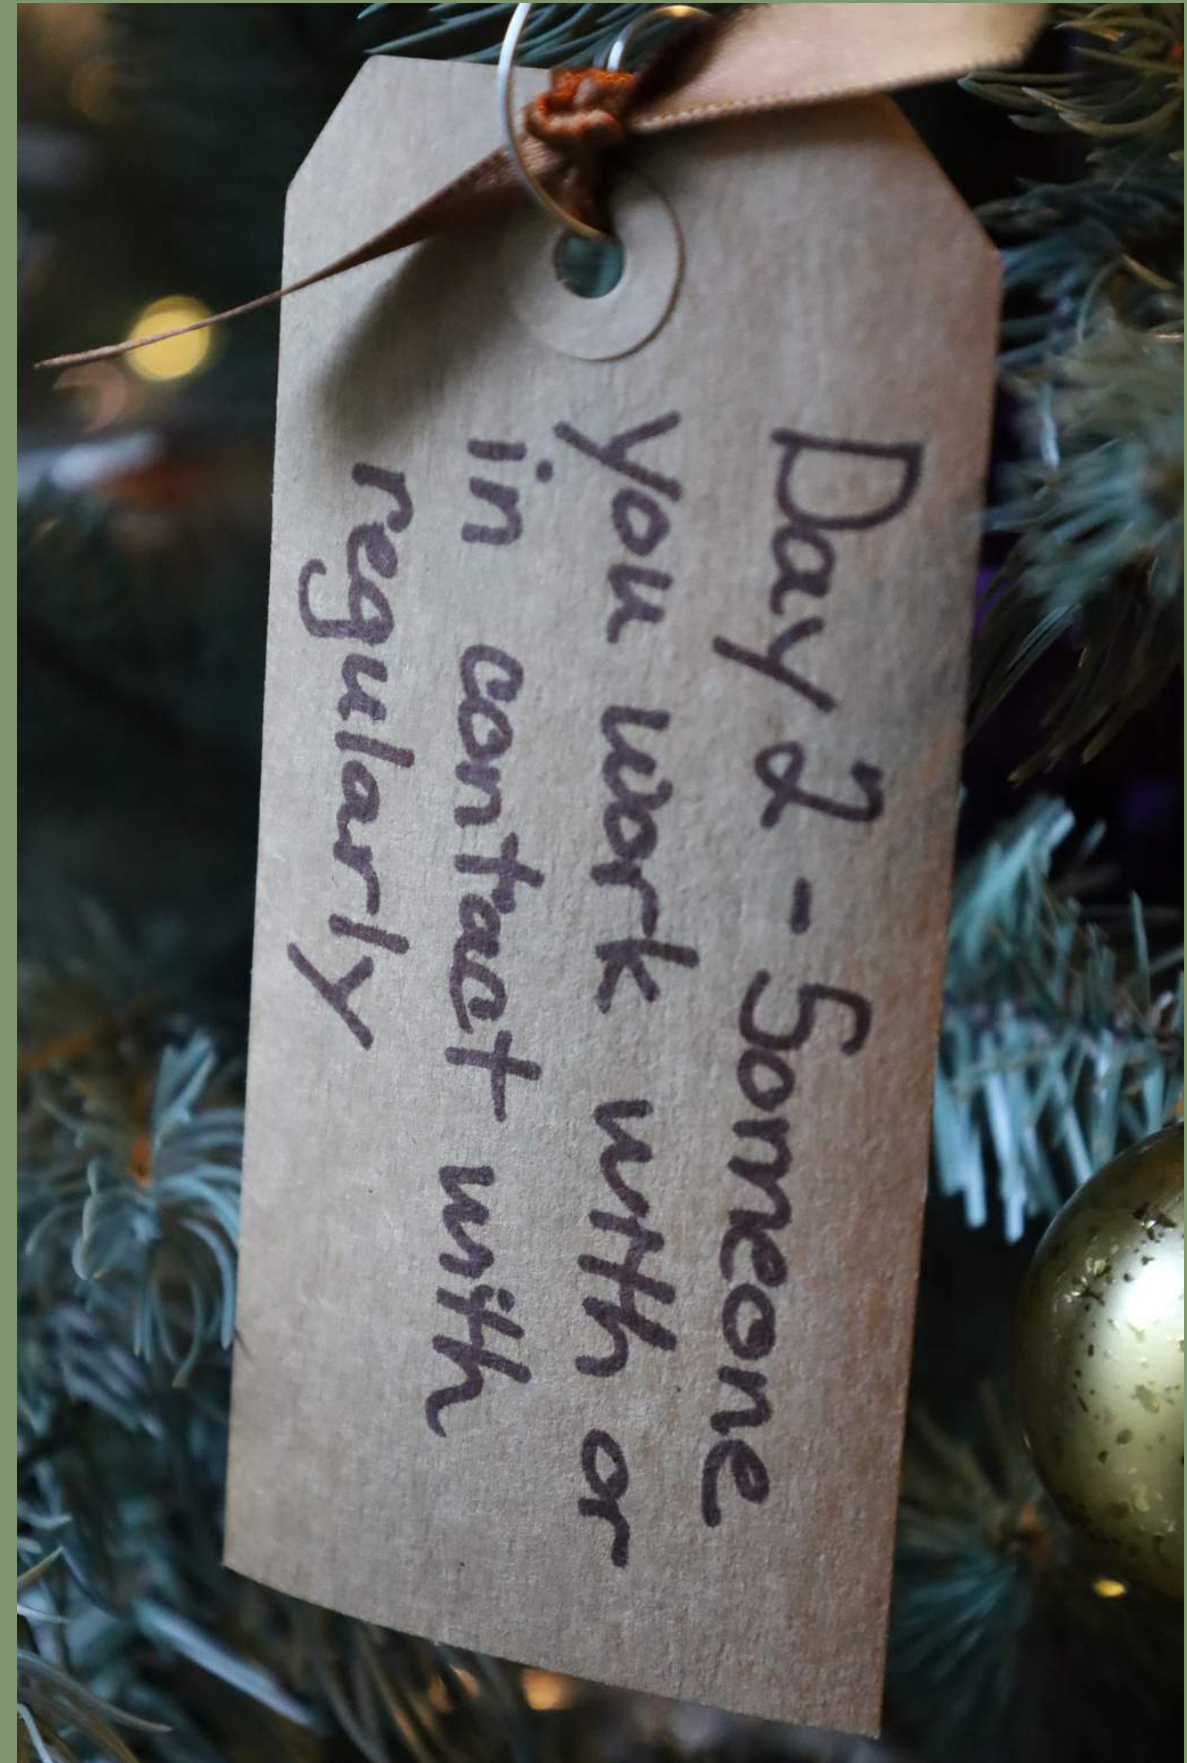 Day 2 - Someone
you work with or
in contact with
regularly